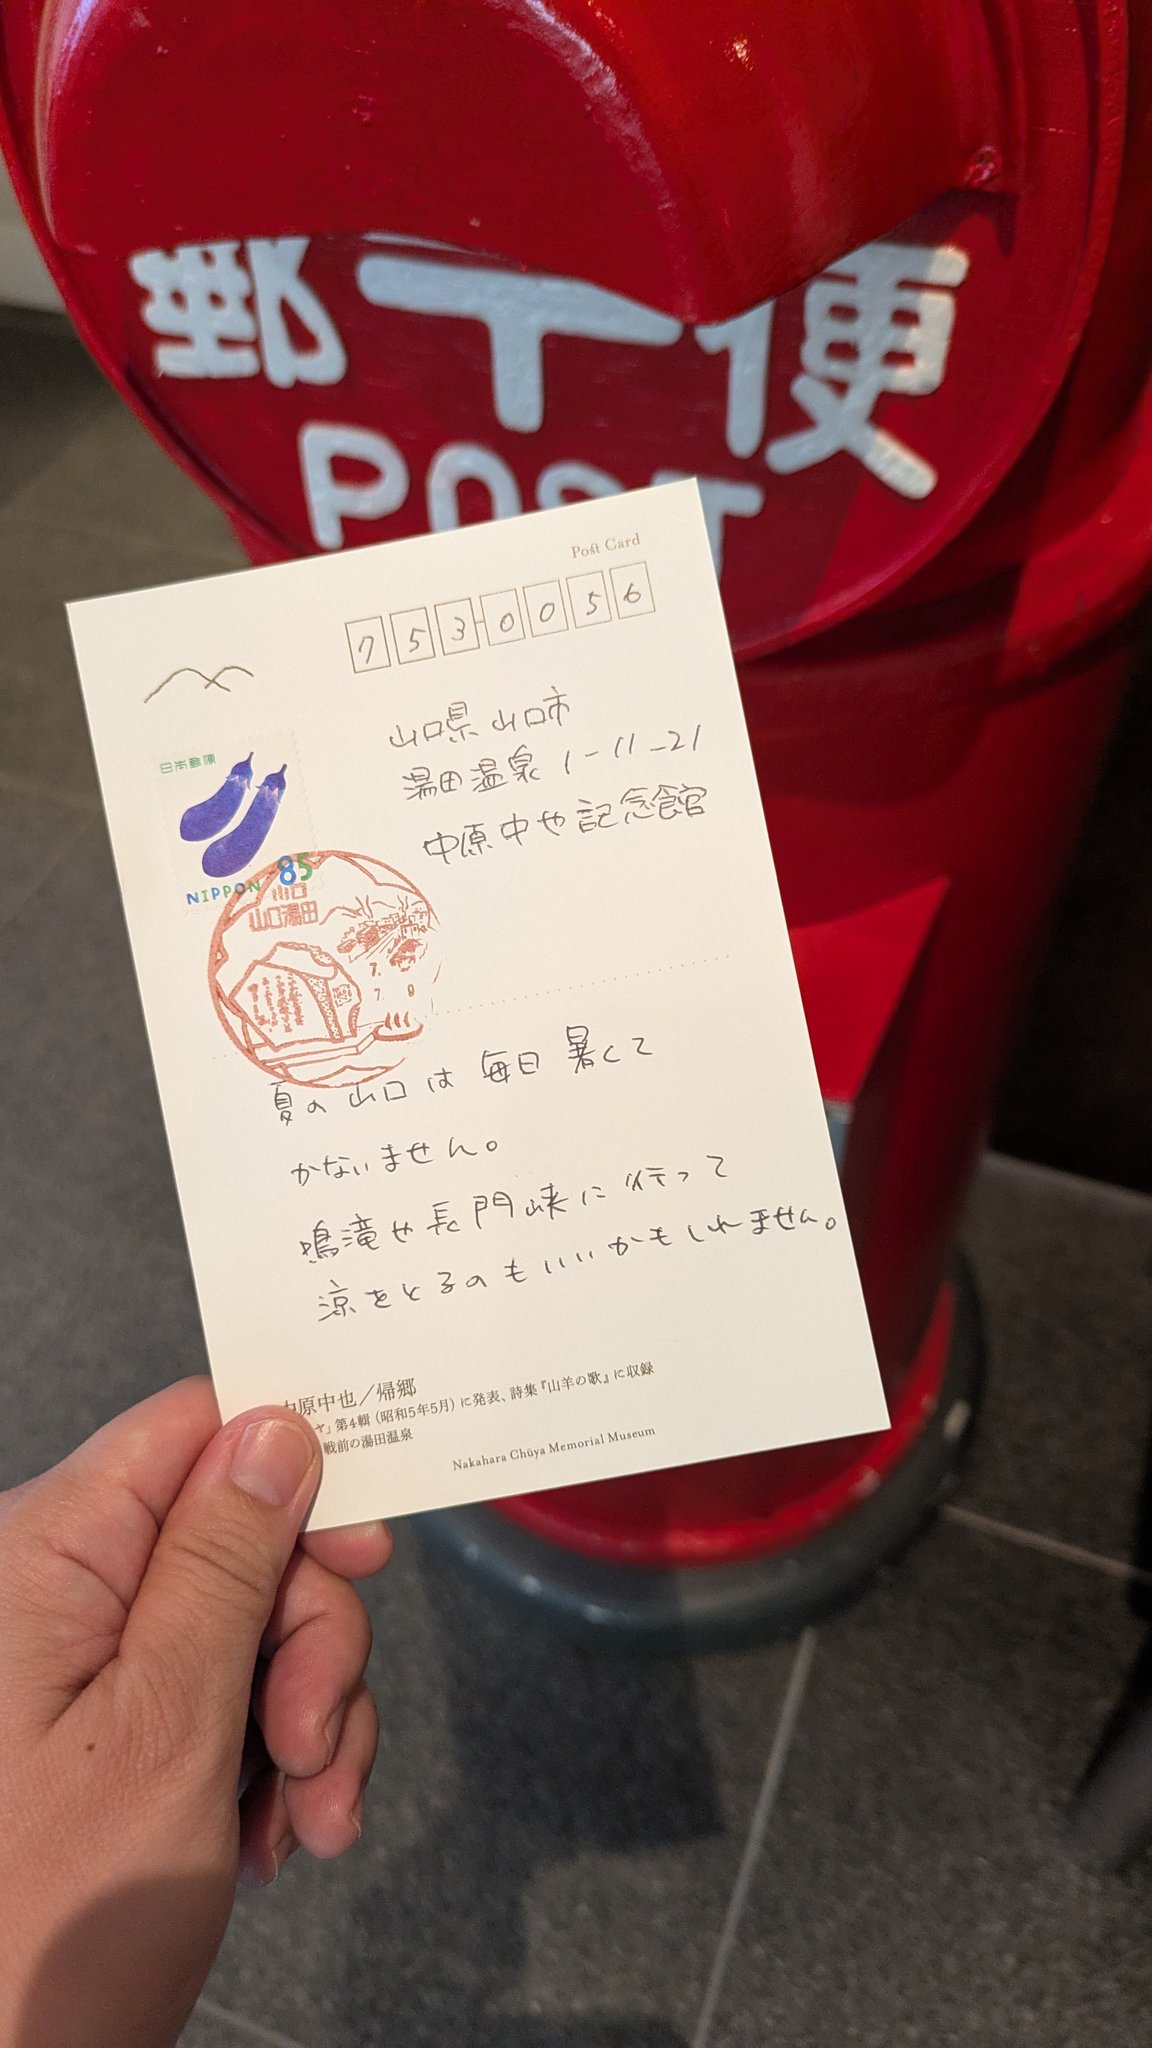 郵〒便
POST
Post Card
753-0056
山口県山口市
湯田温泉1-11-21
中原中や記念館
日本郵便
NIPPON 85
山口
山口湯田
7.
7. 8
夏の山口は毎日暑くて
かないません。
鳴滝や長門峡に行って
涼をとるのもいいかもしれません。
中原中也／帰郷
ヤ」第4輯（昭和5年5月）に発表、詩集『山羊の歌』に収録
戦前の湯田温泉
Nakahara Chūya Memorial Museum